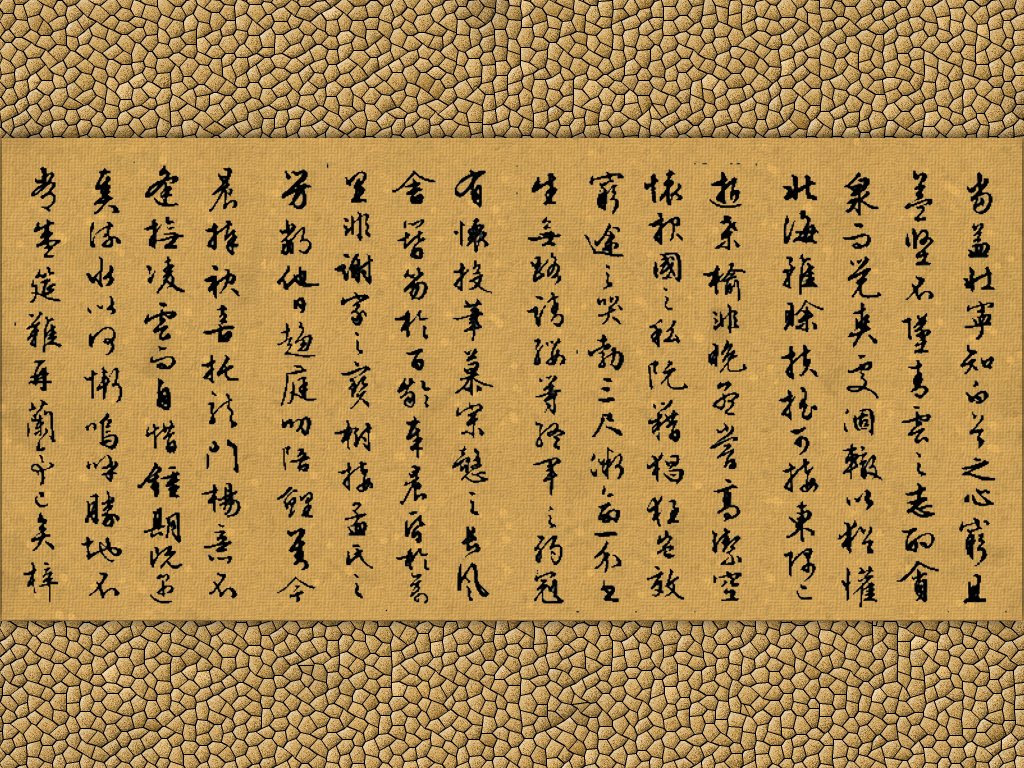 当益壯寧知白首之心窮且
益堅不墜青雲之志酌貪
泉而覺爽處涸轍以猶懽
北海雖賒扶搖可接東隅已
逝桑榆非晚孟嘗高潔空
懷報國之私阮藉猖狂豈效
窮途之哭勃三尺微命一介書
生無路請纓等終軍之弱冠
有懷投筆慕宗愨之長風
舍簪笏於百齡奉晨昏於萬
里非謝家之寶樹接孟氏之
芳鄰他日趨庭叨陪鯉對今
晨捧袂喜托龍門楊意不
逢撫凌雲而自惜鍾期既遇
奏流水以何慚嗚呼勝地不
常盛筵難再蘭亭已矣梓